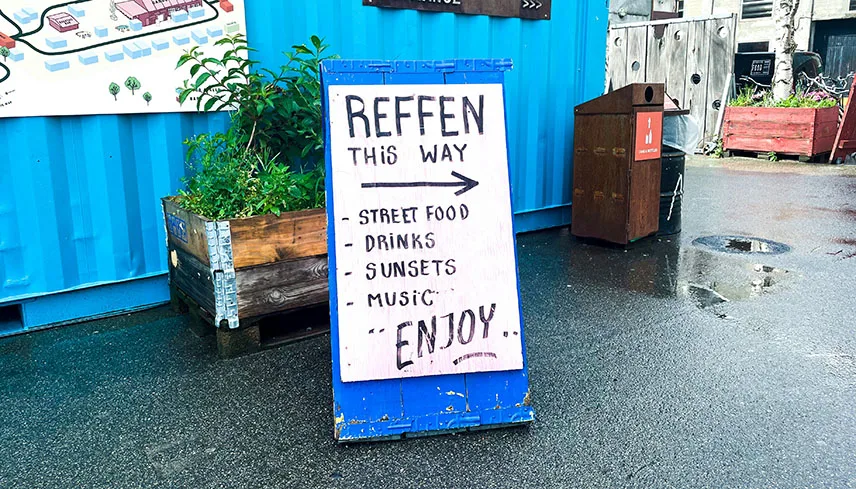 REFFEN
THIS WAY
- STREET FOOD
- DRINKS
- SUNSETS
- MUSIC
ENJOY..